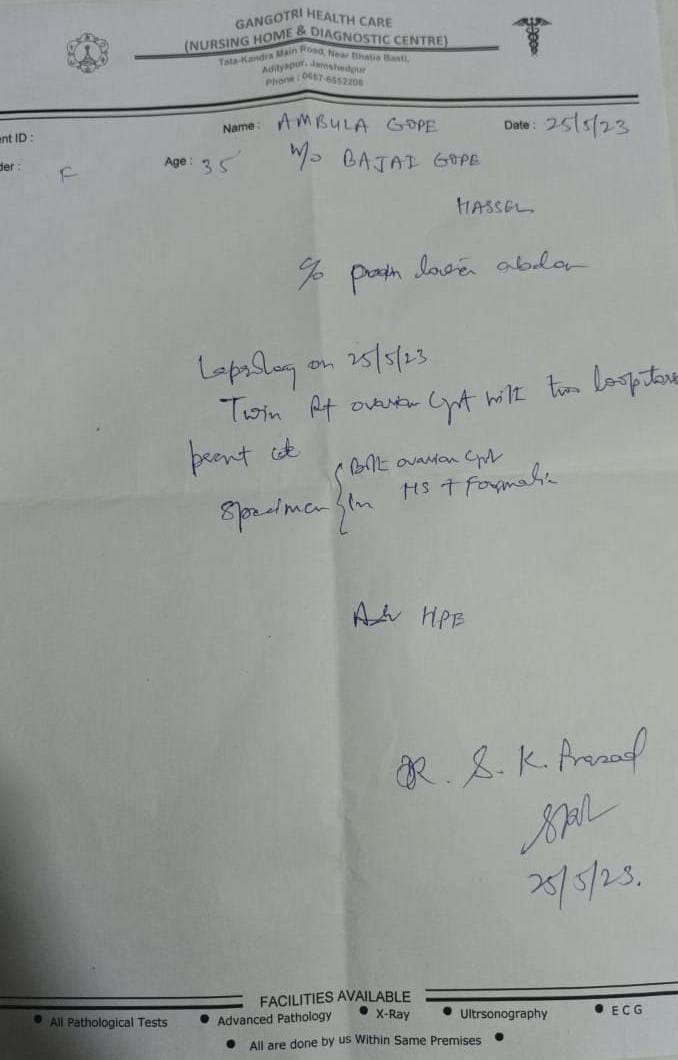 GANGOTRI HEALTH CARE
(NURSING HOME & DIAGNOSTIC CENTRE)
Tata-Kandra Main Road, Near Bhatia Basti,
Adityapur, Jamshedpur
Phone : 0657-6552208
ent ID :
Name : AMBULA GOPE
Date : 25/5/23
der : F
Age : 35
W/o BAJAI GOPE
HASSEL
c/o
on 25/5/23
Twin Rt ovarian cyst with two loop
Specimen
ovarian cyst
in NS +
Adv HPE
DR. S. K. Prasad
25/5/23.
FACILITIES AVAILABLE
• All Pathological Tests • Advanced Pathology • X-Ray • Ultrsonography • E C G
• All are done by us Within Same Premises •